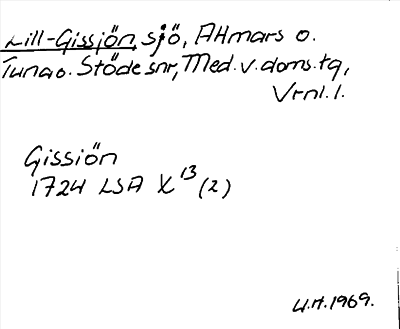 Lill-Gissjön, sjö, Attmars o.
Tuna o. Stöde snr, Med. v. doms. tg,
Vrnl. l.
Gissiön
1724 LSA X¹³ (2)
U.H. 1969.